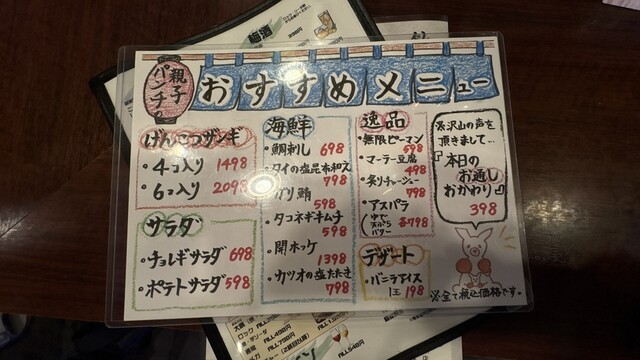 梅酒
親子
パンチの
おすすめメニュー
げんこつザンギ
・4コ入り 1498
・6コ入り 2098
サラダ
・チョレギサラダ 698
・ポテトサラダ 598
海鮮
・鯛刺し 698
・タイの塩昆布和え
798
598
・タコネギキムチ
598
・開ホッケ
1398
・カツオの塩たたき
798
逸品
・無限ピーマン
598
・マーラー豆腐
498
・炙りチャーシュー
798
・アスパラ
ゆで
天ぷら
バター
各798
デザート
・バニラアイス
198
沢山の声を
頂きまして…
『本日の
お通し
おかわり』
398
※全て税込価格です。